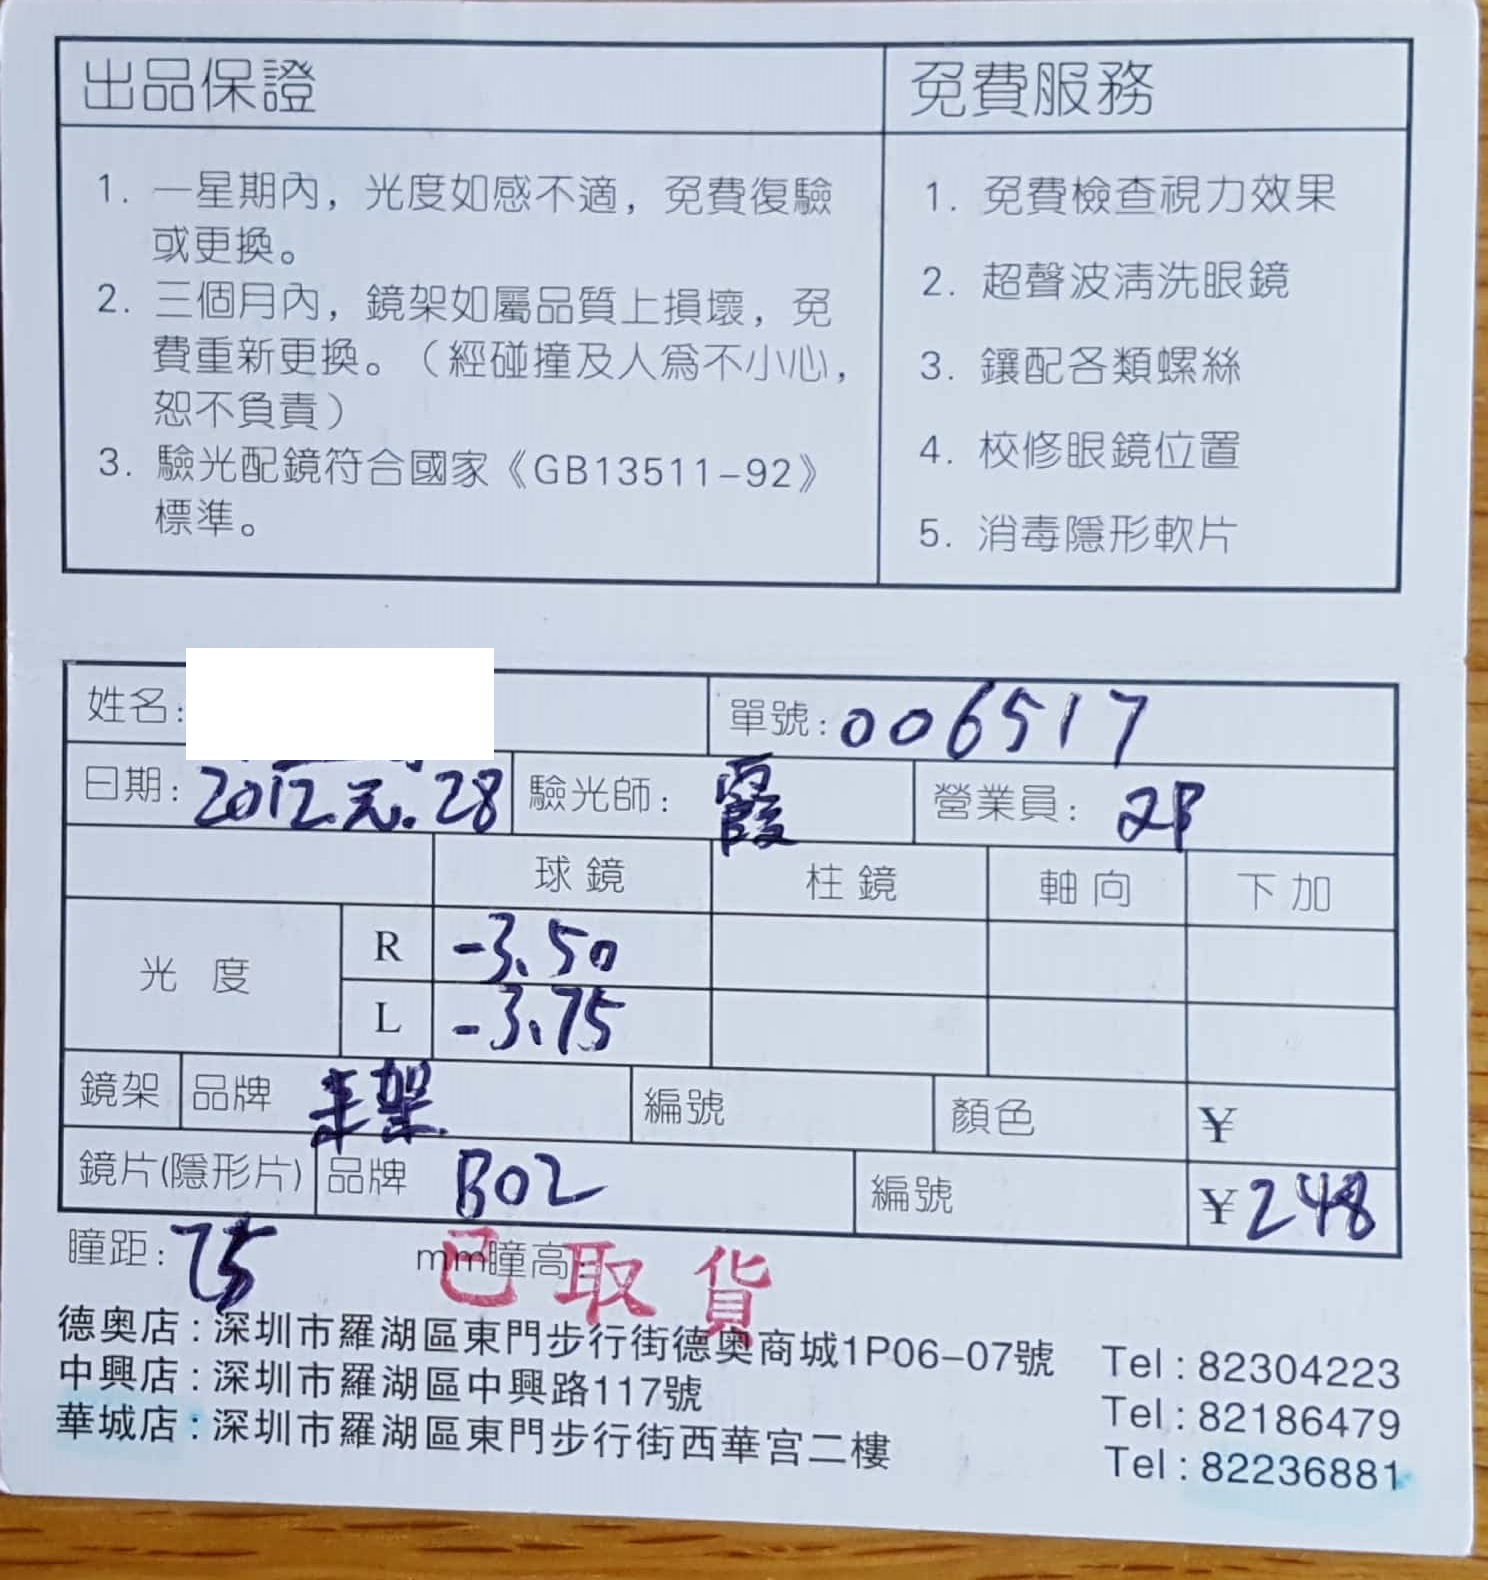 出品保證
1. 一星期內，光度如感不適，免費復驗
或更換。
2. 三個月內，鏡架如屬品質上損壞，免
費重新更換。（經碰撞及人爲不小心，
恕不負責）
3. 驗光配鏡符合國家《GB13511-92》
標準。
免費服務
1. 免費檢查視力效果
2. 超聲波清洗眼鏡
3. 鑲配各類螺絲
4. 校修眼鏡位置
5. 消毒隱形軟片
姓名: 單號: 006517
日期: 2012.元.28 驗光師: 霞 營業員:
球鏡 柱鏡 軸向 下加
光度
R -3.50
L -3.75
鏡架 品牌 來架 編號 顏色 ¥
鏡片(隱形片) 品牌 BOL 編號 ¥248
瞳距: 75 mm瞳高:
已取貨
德奧店:深圳市羅湖區東門步行街德奧商城1P06-07號 Tel:82304223
中興店:深圳市羅湖區中興路117號 Tel:82186479
華城店:深圳市羅湖區東門步行街西華宮二樓 Tel:82236881